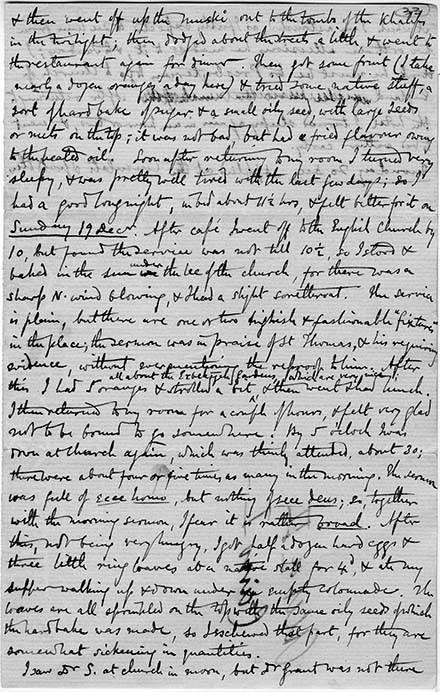 33
& then went off up the Muski out to the tombs of the Khalifs
in the twilight; then dodged about the streets a little, & went to
the restaurant again for dinner. Then got some fruit (I take
nearly a dozen oranges a day here) & tried some native stuff, a
sort of hardbake of sugar & a small oily seed, with large seeds
or nuts on the top; it was not bad but had a fried flavour owing
to the heated oil. Soon after returning to my room I turned very
sleepy, & was pretty well tired with the last few days; so I
had a good long night, in bed about 11½ hrs, & felt better for it on
Sunday 19 Decr. After café I went off to the English Church by
10, but found the service was not till 10½, so I stood &
baked in the sun under the lee of the church, for there was a
sharp N. wind blowing, & I had a slight sore throat. The service
is plain, but there are one or two highish & fashionable "fixtures"
in the place; the sermon was in praise of St Thomas, & his requiring
evidence, without ever mentioning the reproof to him. After
all about the Esbekiyeh Gardens, which are very nice;
this I had 5 oranges & strolled a bit, & then went & had lunch.
I then returned to my room for a couple of hours, & felt very glad
not to be bound to go somewhere. By 5 o'clock I was
down at church again, which was thinly attended, about 30;
there were about four or five times as many in the morning. The sermon
was full of ecce homo, but nothing of ecce deus; so together
with the morning sermon, I fear it is rather broad. After
this, not being very hungry, I got half a dozen hard eggs &
three little ring loaves at a native stall for 4d, & ate my
supper walking up & down under an empty colonnade. The
loaves are all sprinkled on the top with the same oily seeds of which
the hardbake was made, so I eschewed that part, for they are
somewhat sickening in quantities.
I saw Dr S. at church in morn, but Dr Grant was not there